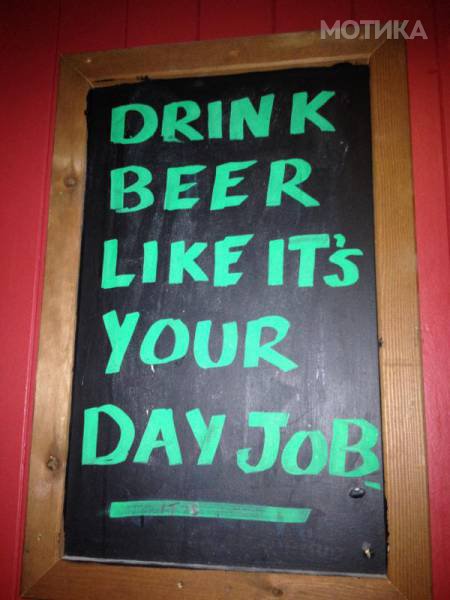 МОТИКА
DRINK
BEER
LIKE IT'S
YOUR
DAY JOB